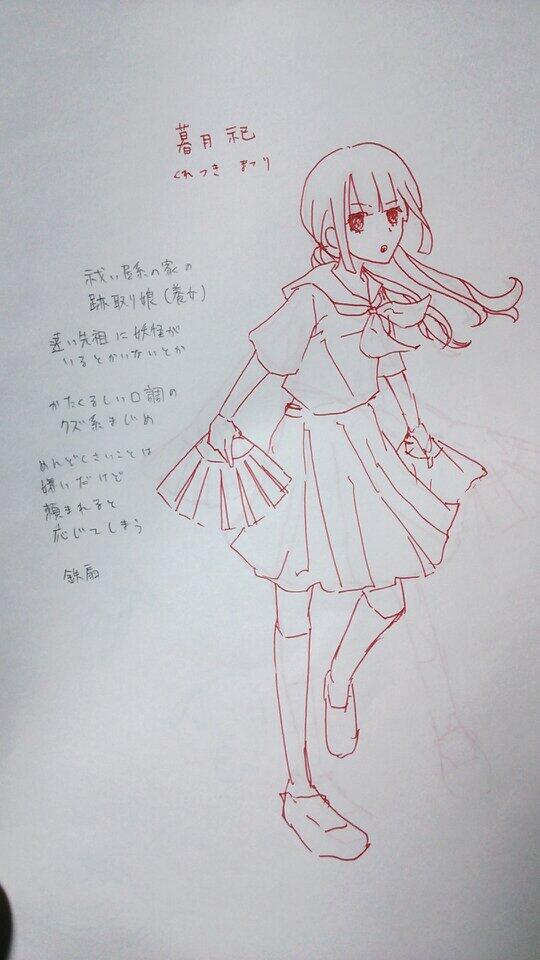 暮月 祀
くれつき まつり
祓い屋系の家の
跡取り娘(養女)
遠い先祖に妖怪が
いるとかいないとか
かたくるしい口調の
クズ系まじめ
めんどくさいことは
嫌いだけど
頼まれると
応じてしまう
鉄扇